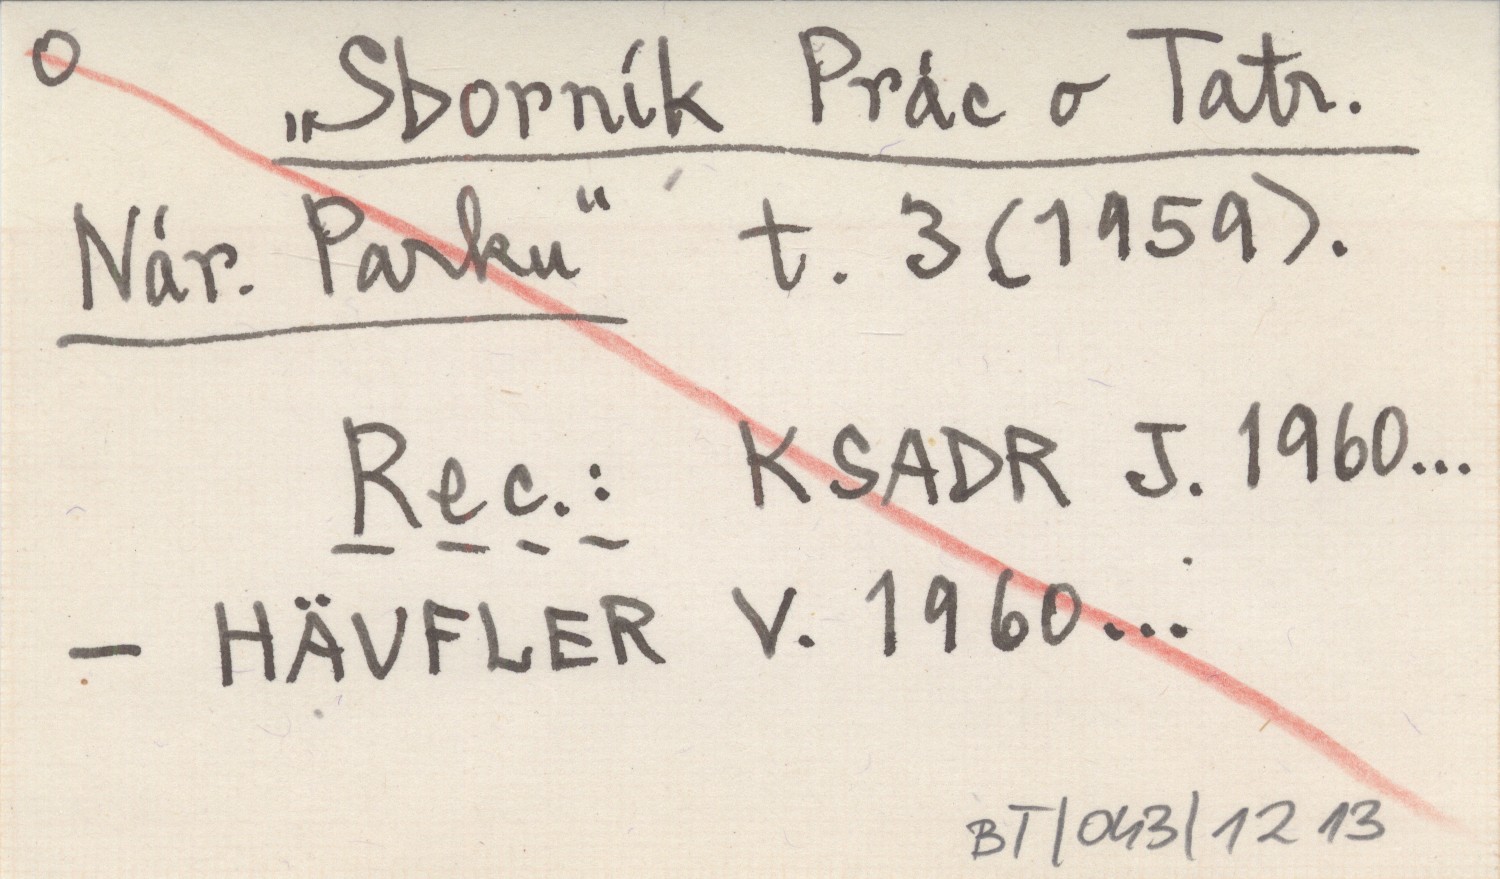 O
„Sborník Prác o Tatr.
Nár. Parku“ t. 3 (1959).
Rec.: KSADR J. 1960...
— HÄUFLER V. 1960...
BT/043/1213